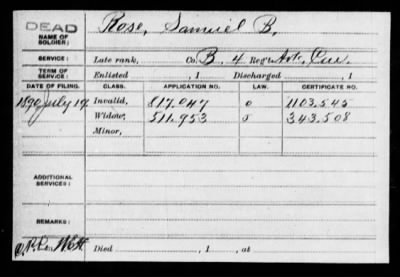 DEAD
NAME OF SOLDIER: Rose, Samuel B.
SERVICE: Late rank, Co. B, 4 Reg't Cav.
TERM OF SERVICE: Enlisted , 1 Discharged , 1
DATE OF FILING. CLASS. APPLICATION NO. LAW. CERTIFICATE NO.
1890 July 19 Invalid, 817.047 0 1103.545
Widow, 511.953 343.508
Minor,
ADDITIONAL SERVICES:
REMARKS:
Died , 1 , at